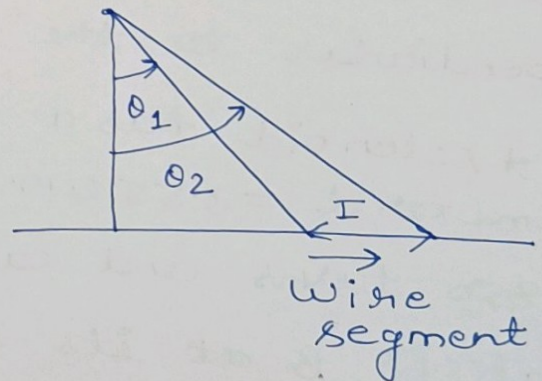 θ1
θ2
I
wire
segment